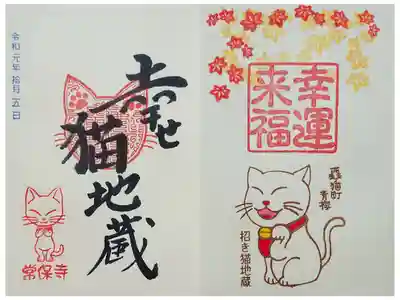 令和元年拾月
幸せ
猫地蔵
常保寺
幸運
来福
猫町
青梅
招き猫地蔵